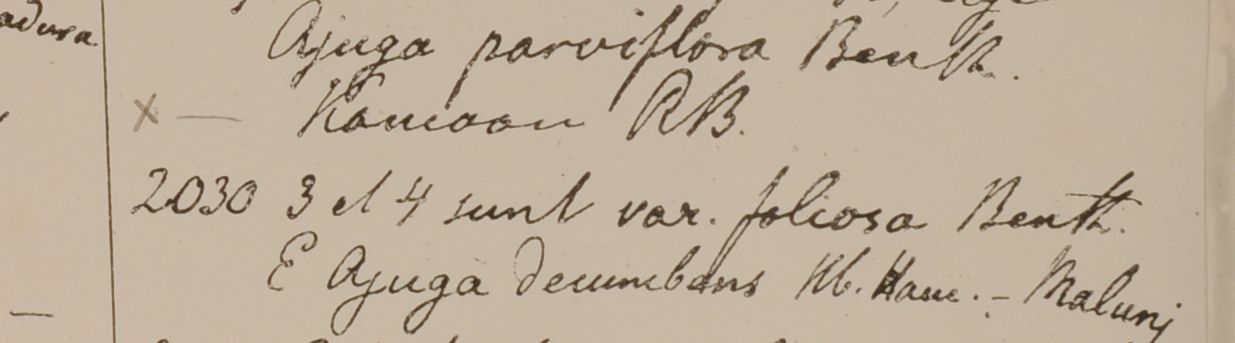 adura
Ajuga parviflora Benth.
x — Kamaon RB.
2030 3 et 4 sunt var. foliosa Benth.
E Ajuga decumbens Hb. Ham. - Malunj